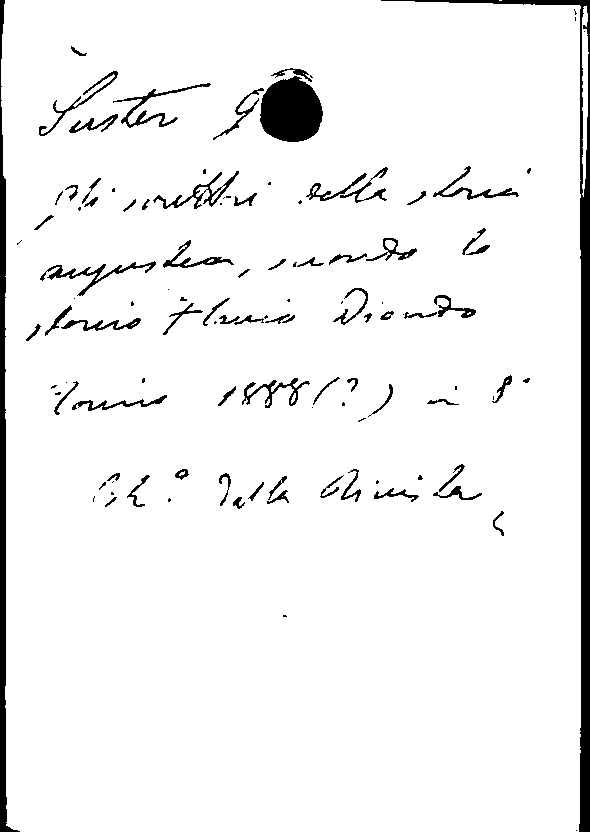 Suster G
Gli scrittori della storia
augustea, secondo lo
storico Flavio Biondo
Torino 1888(?) in 8°
Est.º dalla Rivista